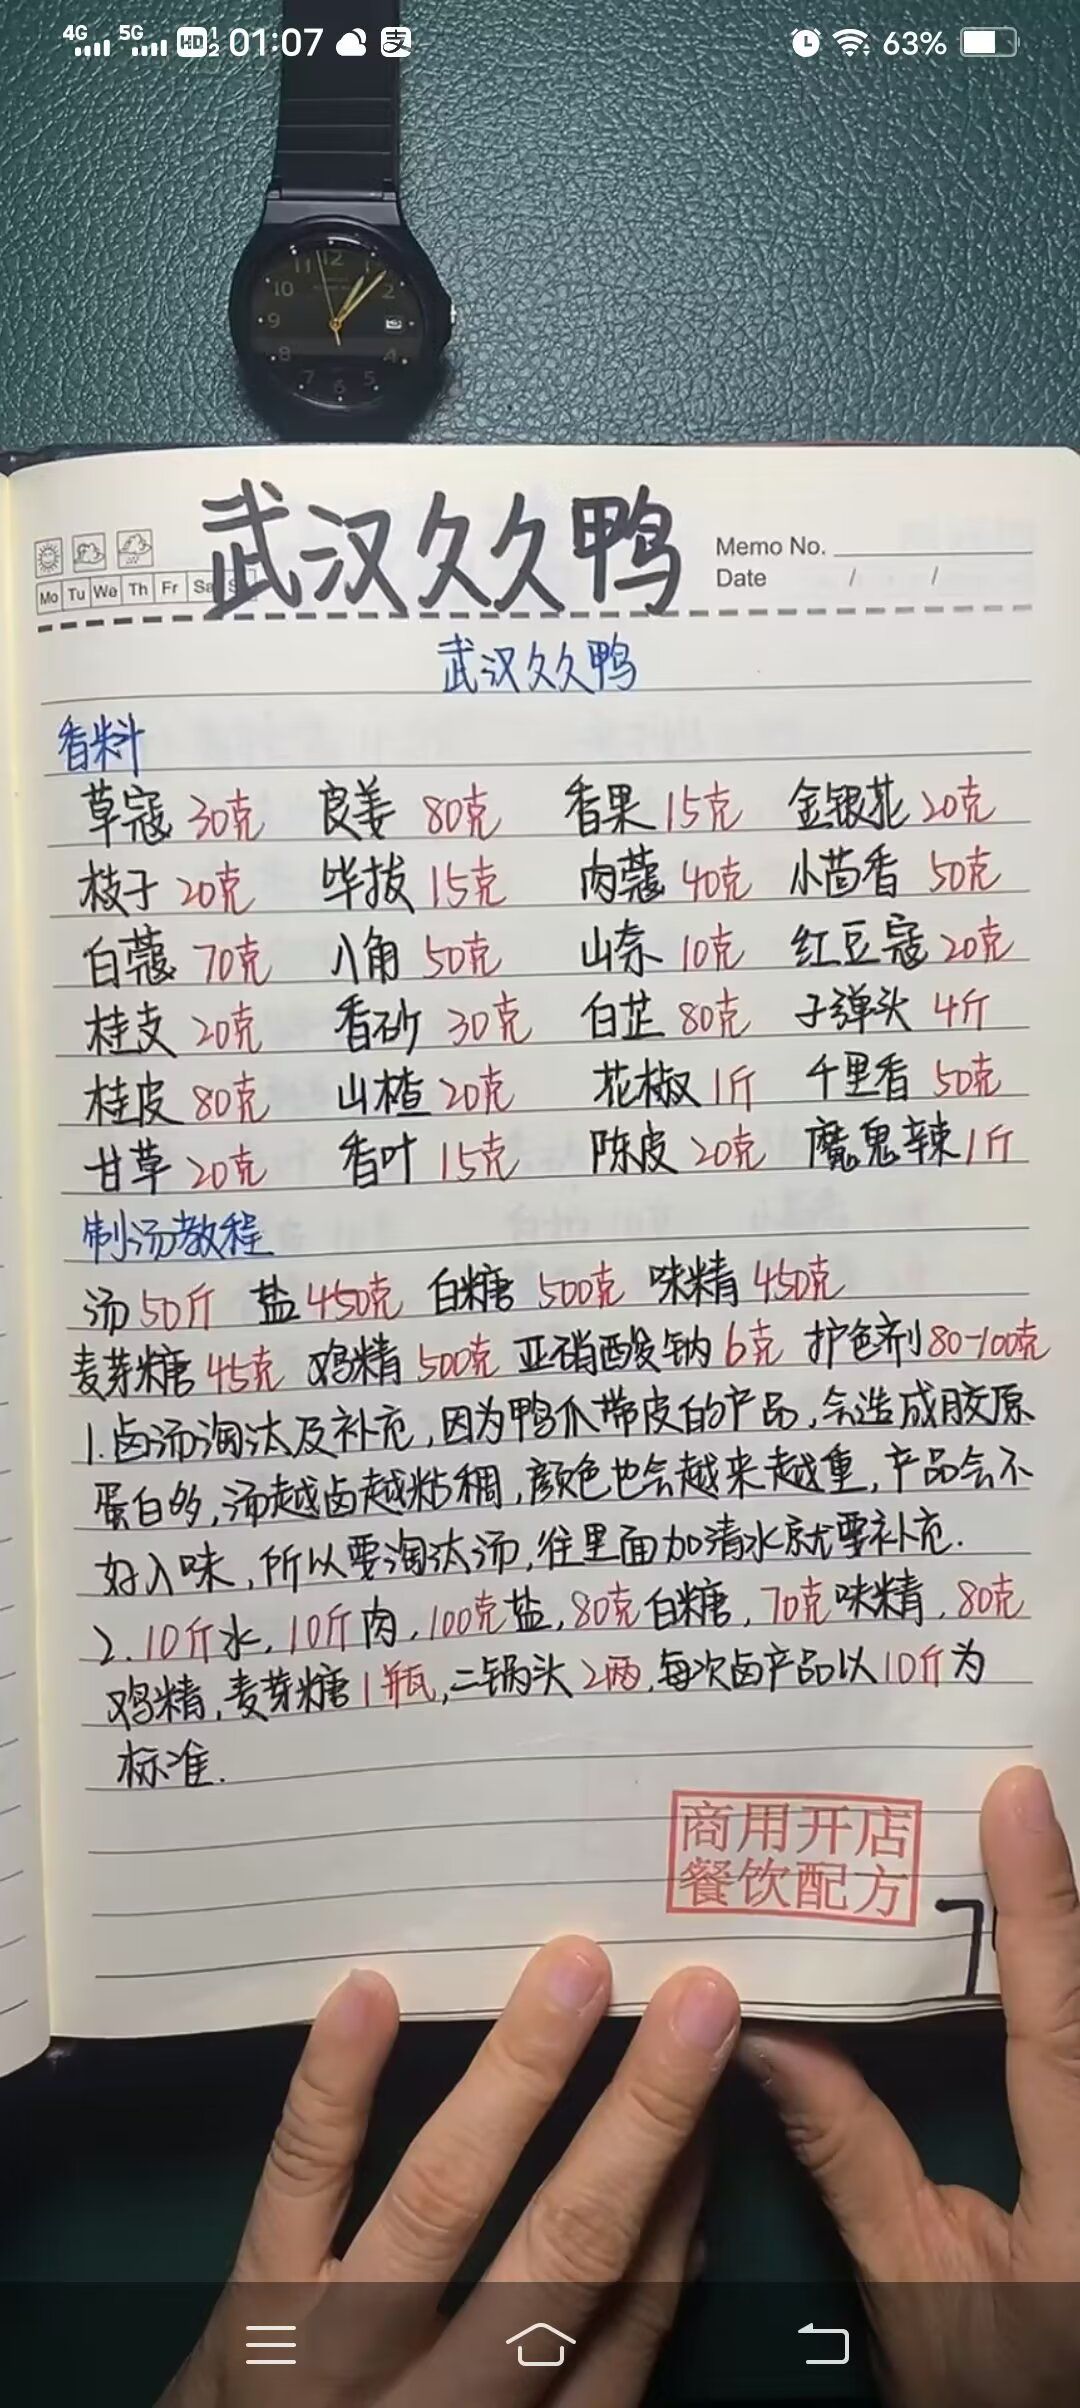 4G 5G HD 1 2 01:07 支 63%
12
11 1
10 2
9
8 4
7 6 5
武汉久久鸭
Memo No.
Date / /
Mo Tu We Th Fr Sa
武汉久久鸭
香料
草寇 30克 良姜 80克 香果 15克 金银花 20克
枝子 20克 毕拔 15克 肉蔻 40克 小茴香 50克
白蔻 70克 八角 50克 山奈 10克 红豆寇 20克
桂支 20克 香砂 30克 白芷 80克 子弹头 4斤
桂皮 80克 山楂 20克 花椒 1斤 千里香 50克
甘草 20克 香叶 15克 陈皮 20克 魔鬼辣 1斤
制汤教程
汤 50斤 盐 450克 白糖 500克 味精 450克
麦芽糖 45克 鸡精 500克 亚硝酸钠 6克 护色剂 80-100克
1.卤汤淘汰及补充,因为鸭爪带皮的产品,会造成胶原
蛋白多,汤越卤越粘稠,颜色也会越来越重,产品会不
好入味,所以要淘汰汤,往里面加清水就要补充.
2.10斤水,10斤肉,100克盐,80克白糖,70克味精,80克
鸡精,麦芽糖1瓶,二锅头2两,每次卤产品以10斤为
标准.
商用开店
餐饮配方